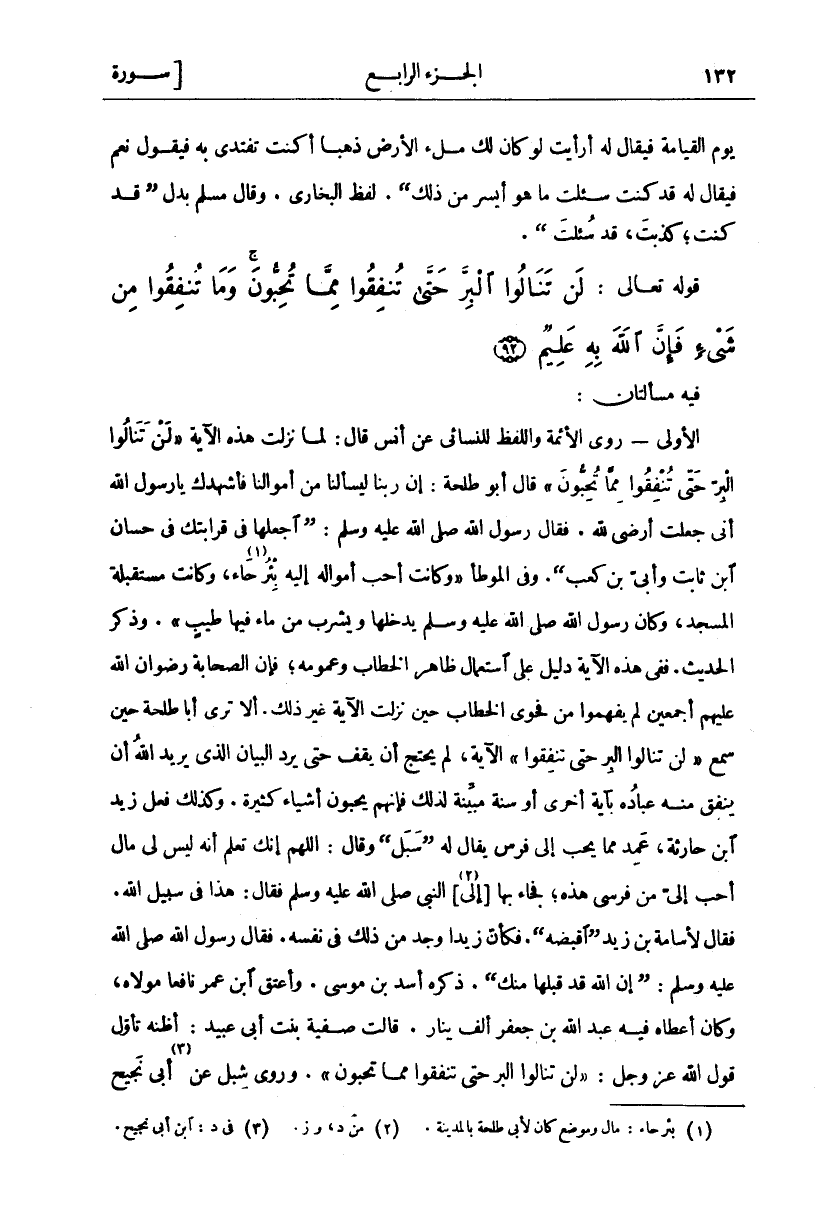 ١٣٢ الجـزء الرابـع [ سـورة
يوم القيامة فيقال له أرأيت لو كان لك مـلء الأرض ذهبـا أكنت تفتدى به فيقـول نعم
فيقال له قد كنت سـئلت ما هو أيسر من ذلك“ . لفظ البخارى . وقال مسلم بدل ”قـد
كنت؛ كذبتَ، قد سُئلتَ“ .
قوله تعـالى : لَن تَنَالُوا ٱلْبِرَّ حَتَّىٰ تُنفِقُوا مِمَّـا تُحِبُّونَ ۚ وَمَا تُنفِقُوا مِن
شَىْءٍ فَإِنَّ ٱللَّهَ بِهِ عَلِيمٌ (٩٢)
فيه مسألتان :
الأولى — روى الأئمة واللفظ للنسائى عن أنس قال : لمـا نزلت هذه الآية «لَنْ تَنَالُوا
الْبِرَّ حَتَّى تُنْفِقُوا مِمَّا تُحِبُّونَ» قال أبو طلحة : إن ربنا ليسألنا من أموالنا فأشهدك يارسول الله
أنى جعلت أرضى لله . فقال رسول الله صلى الله عليه وسلم : ”ٱجعلها فى قرابتك فى حسان
ٱبن ثابت وأبىّ بن كعب“. وفى الموطأ «وكانت أحب أمواله إليه بِئْرُ حَاء(١)، وكانت مستقبلة
المسجد، وكان رسول الله صلى الله عليه وسـلم يدخلها ويشرب من ماء فيها طيبٍ» . وذكر
الحديث. ففى هذه الآية دليل على ٱستعمال ظاهر الخطاب وعمومه؛ فإن الصحابة رضوان الله
عليهم أجمعين لم يفهموا من فحوى الخطاب حين نزلت الآية غير ذلك. ألا ترى أبا طلحة حين
سمع « لن تنالوا البر حتى تنفقوا » الآية، لم يحتج أن يقف حتى يرد البيان الذى يريد اللهُ أن
ينفق منـه عبادُه بآية أخرى أو سنة مبيِّنة لذلك فإنهم يحبون أشياء كثيرة . وكذلك فعل زيد
ٱبن حارثة، عَمِد مما يحب إلى فرس يقال له ”سَبَل“ وقال : اللهم إنك تعلم أنه ليس لى مال
أحب إلىّ من فرسى هذه؛ فجاء بها [إلى](٢) النبي صلى الله عليه وسلم فقال : هذا فى سبيل الله .
فقال لأسامة بن زيد ”ٱقبضه“. فكأن زيدا وجد من ذلك فى نفسه. فقال رسول الله صلى الله
عليه وسلم : ”إن الله قد قبلها منك“ . ذكره أسد بن موسى . وأعتق ٱبن عمر نافعا مولاه،
وكان أعطاه فيـه عبد الله بن جعفر ألف ينار . قالت صـفية بنت أبى عبيد : أظنه تأوّل
قول الله عز وجل : «لن تنالوا البر حتى تنفقوا ممـا تحبون» . وروى شِبل عن (٣)أبى نَجيح
(١) بئرحاء : مال وموضع كان لأبى طلحة بالمدينة . (٢) من د، و ز . (٣) فى د : ٱبن أبى نجيح .